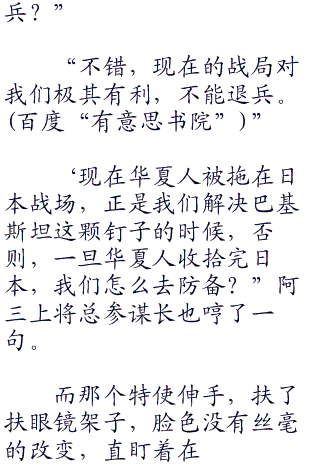 兵？”
“不错，现在的战局对
我们极其有利，不能退兵。
(百度“有意思书院”)”
‘现在华夏人被拖在日
本战场，正是我们解决巴基
斯坦这颗钉子的时候，否
则，一旦华夏人收拾完日
本，我们怎么去防备？”阿
三上将总参谋长也哼了一
句。
而那个特使伸手，扶了
扶眼镜架子，脸色没有丝毫
的改变，直盯着在